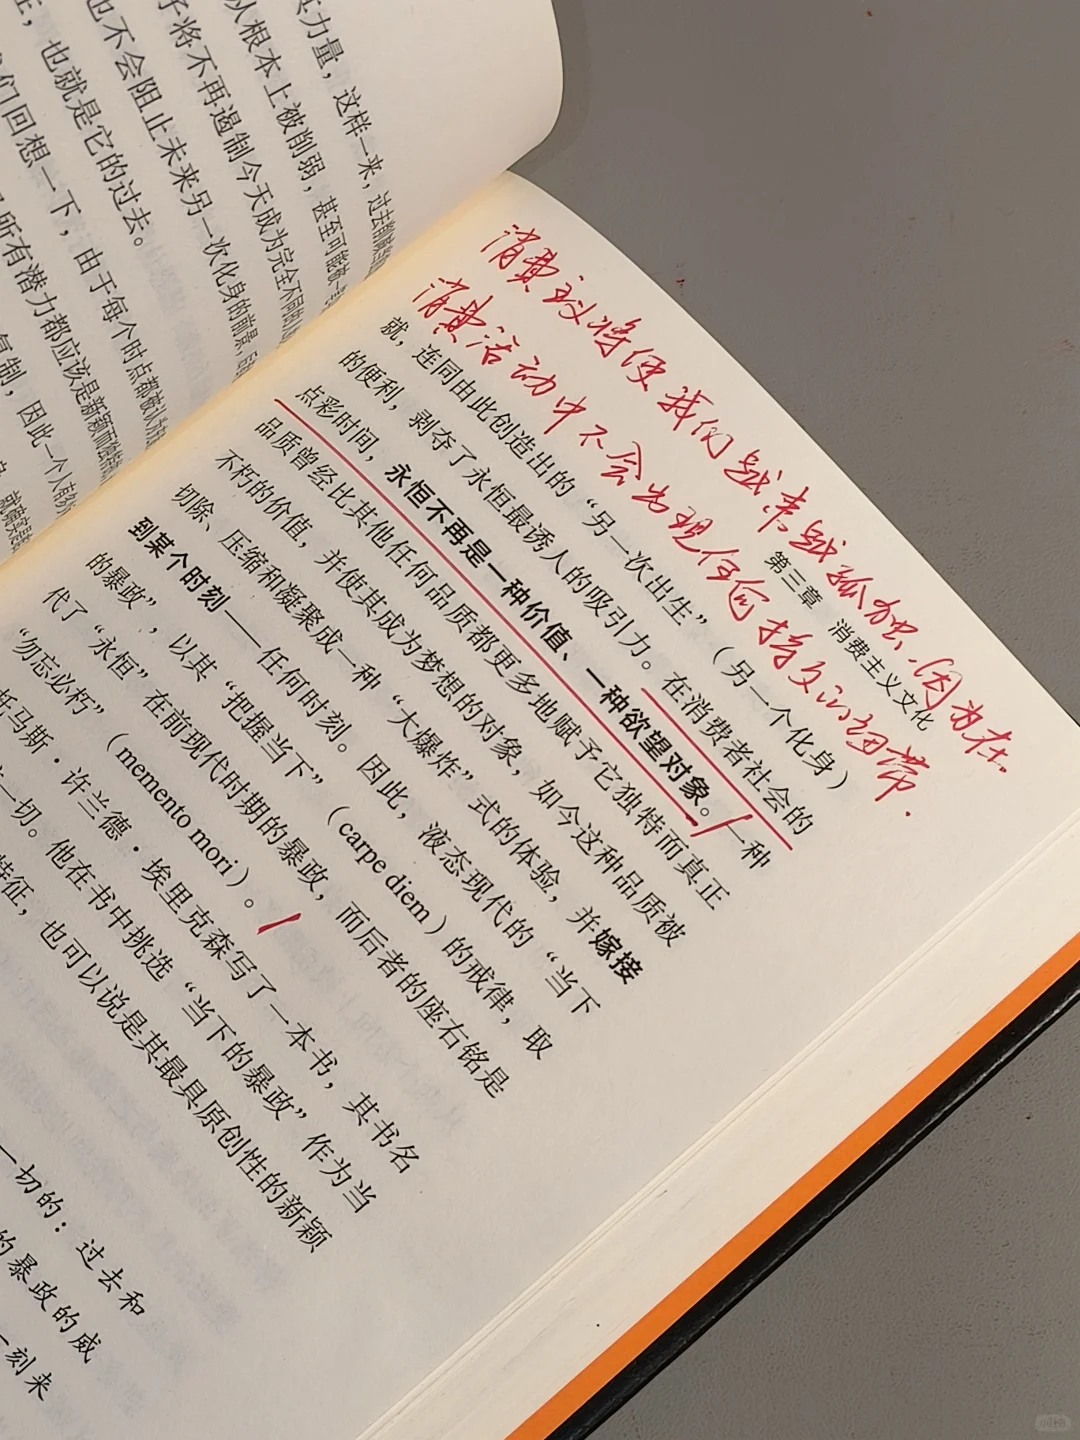 力量，这样一来，过去
从根本上被削弱，甚至可能被一
子将不再遏制今天成为完全不同的
也不会阻止未来另一次化身的前景，
，也就是它的过去。
们回想一下，由于每个时点都被认为
所有潜力都应该是新颖而独
复制，因此一个人
消费主义将使我们越来越孤独.因为在.
消费活动中不会出现任何持久的纽带.
第三章 消费主义文化
就，连同由此创造出的“另一次出生”（另一个化身）
的便利，剥夺了永恒最诱人的吸引力。在消费者社会的
点彩时间，永恒不再是一种价值、一种欲望对象。一种
品质曾经比其他任何品质都更多地赋予它独特而真正
不朽的价值，并使其成为梦想的对象，如今这种品质被
切除、压缩和凝聚成一种“大爆炸”式的体验，并嫁接
到某个时刻——任何时刻。因此，液态现代的“当下
的暴政”，以其“把握当下”（carpe diem）的戒律，取
代了“永恒”在前现代时期的暴政，而后者的座右铭是
“勿忘必朽”（memento mori）。
托马斯·许兰德·埃里克森写了一本书，其书名
一切。他在书中挑选“当下的暴政”作为当
特征，也可以说是其最具原创性的新颖
一切的：过去和
的暴政的威
一刻来